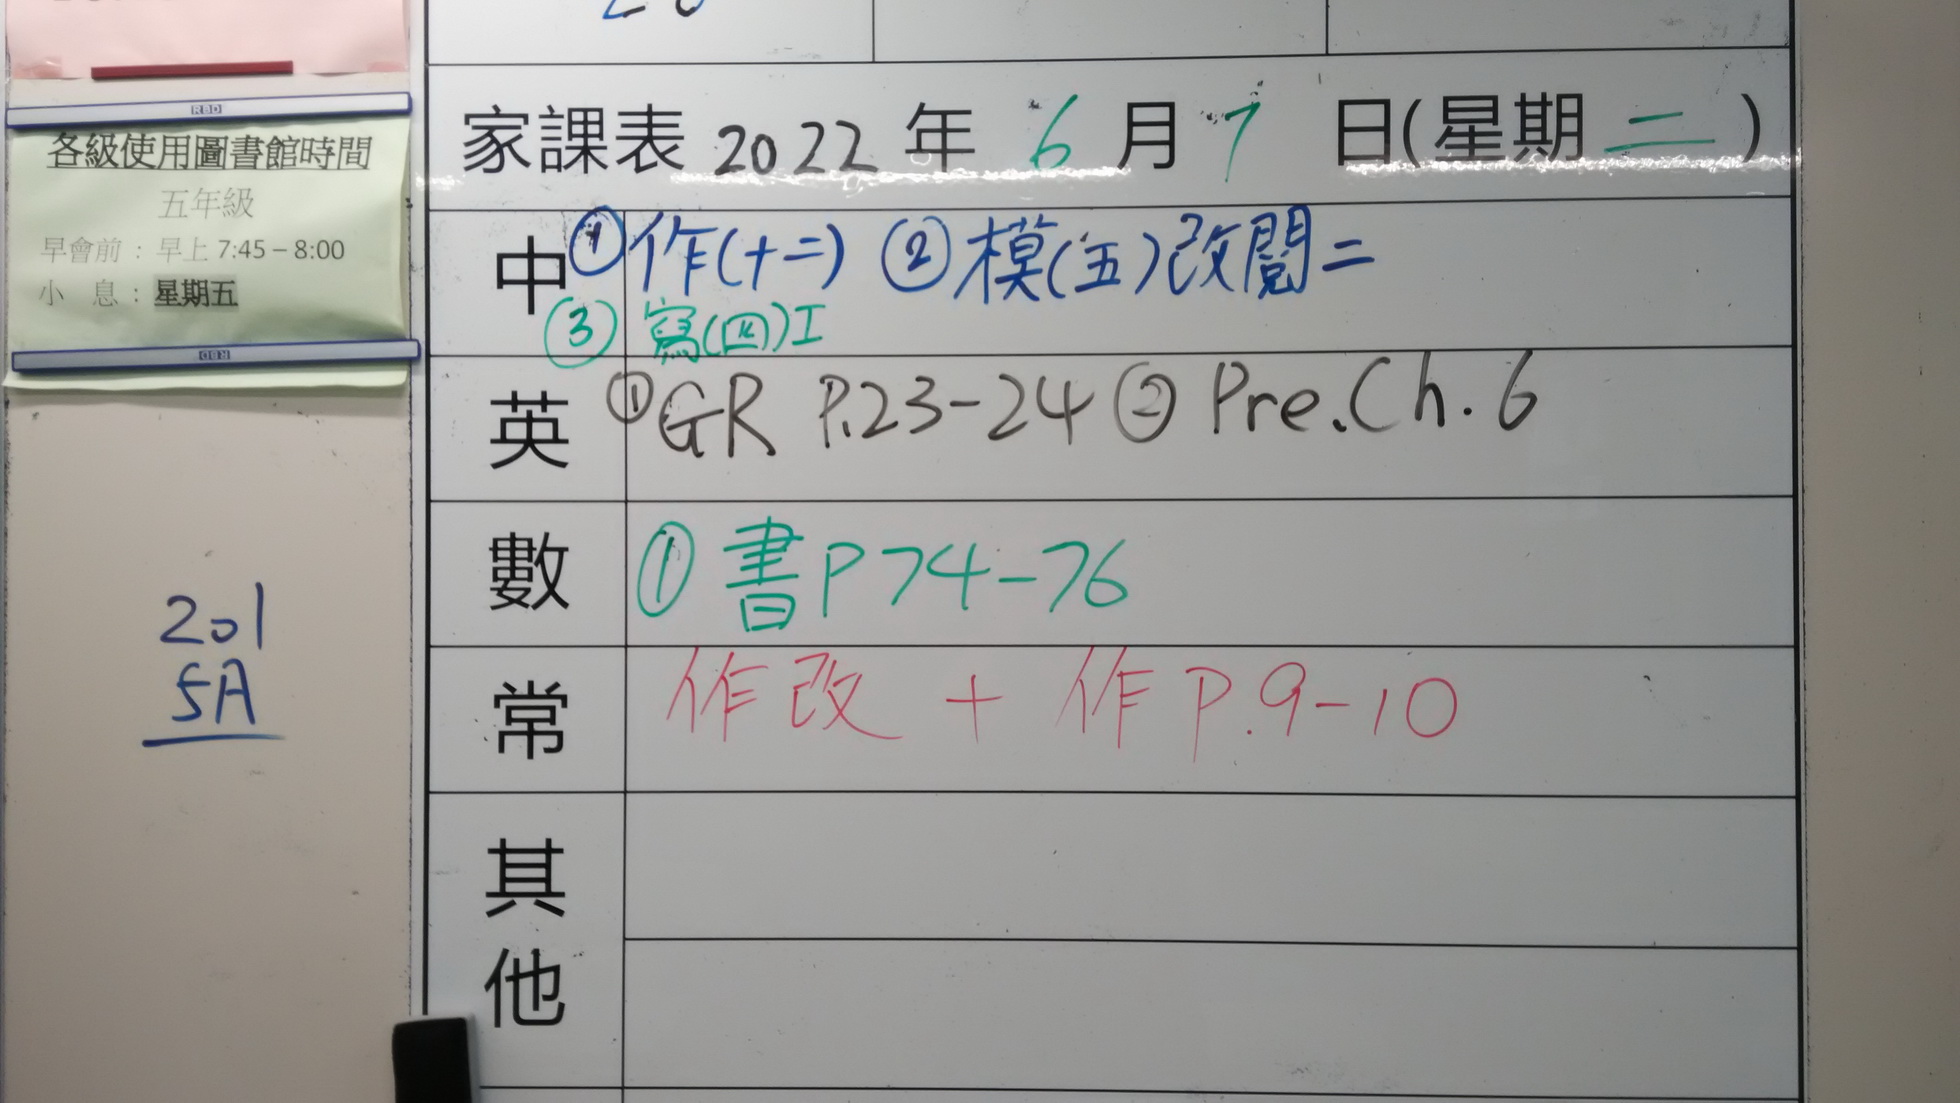 RBD
各級使用圖書館時間
五年級
早會前：早上 7:45 – 8:00
小 息：星期五
RBD
201
5A
家課表 2022 年 6 月 7 日(星期二)
中 ①作(十二) ②模(五)改閱二
③ 寫(四)I
英 ①GR P.23-24 ② Pre.Ch.6
數 ① 書P74-76
常 作改 + 作P.9-10
其
他